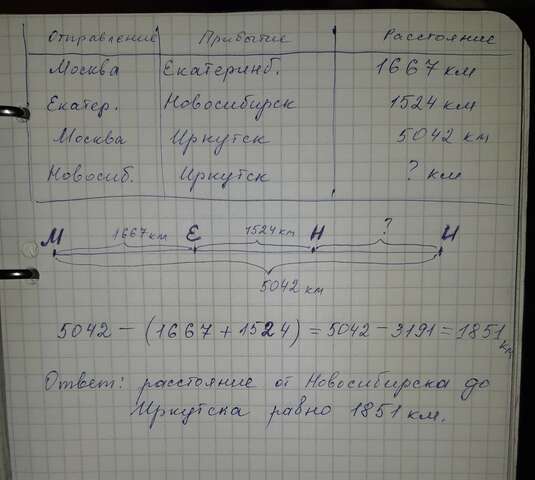 Отправление Прибытие Расстояние
Москва Екатеринб. 1667 км
Екатер. Новосибирск 1524 км
Москва Иркутск 5042 км
Новосиб. Иркутск ? км
М 1667 км Е 1524 км Н ? И
5042 км
5042 - (1667 + 1524) = 5042 - 3191 = 1851 км
Ответ: расстояние от Новосибирска до
Иркутска равно 1851 км.